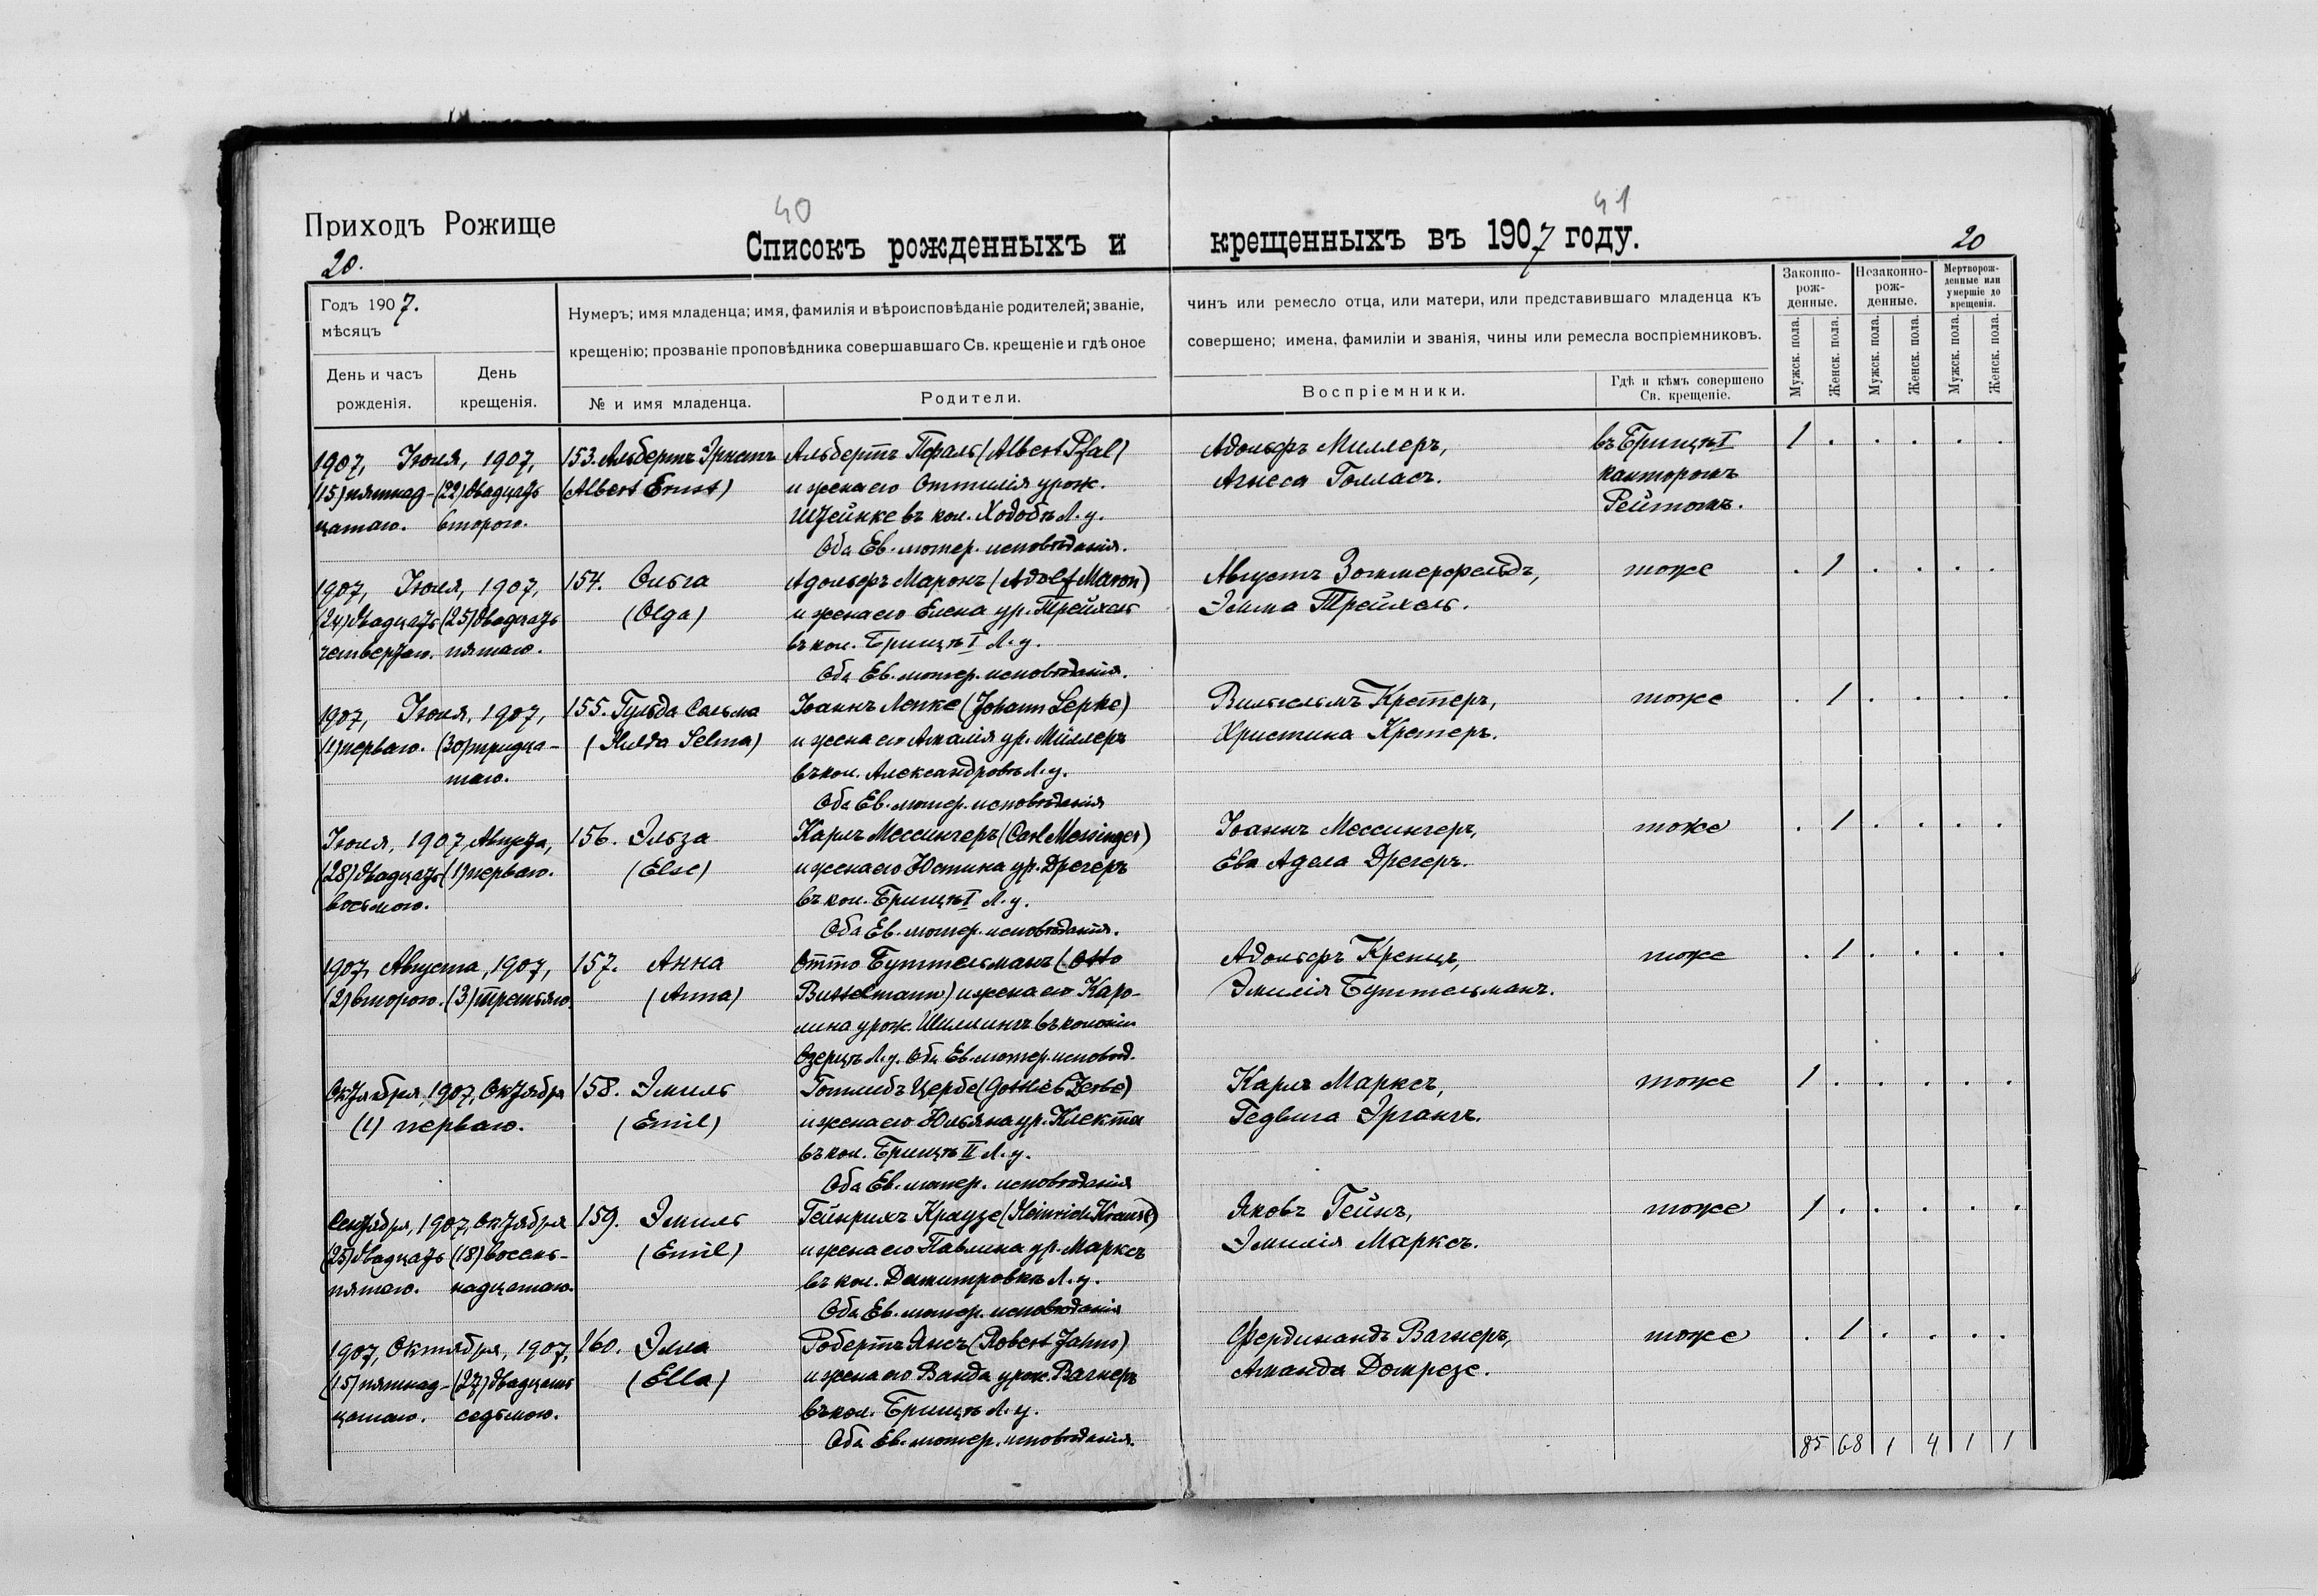 40
41
Приходъ Рожище
Списокъ рожденныхъ и крещенныхъ въ 1907 году.
20.
20
Годъ 1907.
мѣсяцъ
День и часъ рожденія.
День крещенія.
Нумеръ; имя младенца; имя, фамилія и вѣроисповѣданіе родителей; званіе,
крещенію; прозваніе проповѣдника совершавшаго Св. крещеніе и гдѣ оное
№ и имя младенца.
Родители.
чинъ или ремесло отца, или матери, или представившаго младенца къ
совершено; имена, фамиліи и званія, чины или ремесла воспріемниковъ.
Воспріемники.
Гдѣ и кѣмъ совершено
Св. крещеніе.
Законно-
рож-
денные.
Незаконно-
рож-
денные.
Мертворож-
денные или
умершіе до
крещенія.
Мужск. пола.
Женск. пола.
Мужск. пола.
Женск. пола.
Мужск. пола.
Женск. пола.
1907, Іюля, 1907,
(15) пятнад- (22) двадцать
цатаго. второго.
153. Альбертъ Эрнстъ
(Albert Ernst)
Альбертъ Пфаль (Albert Pfal)
и жена его Оттилія урож.
Штейнке въ кол. Ходобѣ Л. у.
Оба Ев. лютер. исповѣданія.
Адольфъ Миллеръ,
Агнеса Голласъ.
въ Брищѣ I
канторомъ
Рейтомъ.
1 . . . . .
1907, Іюля, 1907,
(24) двадцать (25) двадцать
четвертаго. пятаго.
154. Ольга
(Olga)
Адольфъ Маронъ (Adolf Maron)
и жена его Елена ур. Трейхель
въ кол. Брищѣ I Л. у.
Оба Ев. лютер. исповѣданія.
Августъ Зоммерфельдъ,
Эмма Трейхель.
тоже
. 1 . . . .
1907, Іюля, 1907,
(1) перваго. (30) тридца-
таго.
155. Гульда Сельма
(Hulda Selma)
Іоаннъ Лепке (Johann Lepke)
и жена его Амалія ур. Миллеръ
въ кол. Александровѣ Л. у.
Оба Ев. лютер. исповѣданія
Вильгельмъ Кретеръ,
Христина Кретеръ.
тоже
. 1 . . . .
Іюля, 1907, Августа,
(28) двадцать (1) перваго.
восьмого.
156. Эльза
(Else)
Карлъ Мессингеръ (Carl Messinger)
и жена его Юстина ур. Дрегеръ
въ кол. Брищѣ I Л. у.
Оба Ев. лютер. исповѣданія.
Іоаннъ Мессингеръ,
Ева Адела Дрегеръ.
тоже
. 1 . . . .
1907, Августа, 1907,
(2) второго. (3) третьяго.
157. Анна
(Anna)
Отто Буттельманъ (Otto
Buttelmann) и жена его Каро-
лина урож. Шиллингъ въ колоніи
Озерцѣ Л. у. Оба Ев. лютер. исповѣд.
Адольфъ Кренцъ,
Эмилія Буттельманъ.
тоже
. 1 . . . .
Октября, 1907, Октября
(1) перваго.
158. Эмиль
(Emil)
Готлибъ Цербе (Gottlieb Zerbe)
и жена его Юльяна ур. Клекта
въ кол. Брищѣ II Л. у.
Оба Ев. лютер. исповѣданія
Карлъ Марксъ,
Гедвига Эргангъ.
тоже
1 . . . . .
Сентября, 1907, Октября
(25) двадцать (18) восем-
пятаго. надцатаго.
159. Эмиль
(Emil)
Гейнрихъ Краузе (Heinrich Krause)
и жена его Павлина ур. Марксъ
въ кол. Дмитровкѣ Л. у.
Оба Ев. лютер. исповѣданія
Яковъ Гейнъ,
Эмилія Марксъ.
тоже
1 . . . . .
1907, Октября, 1907,
(15) пятнад- (27) двадцать
цатаго. седьмого.
160. Элла
(Ella)
Робертъ Янсъ (Robert Jahns)
и жена его Ванда урож. Вагнеръ
въ кол. Брищѣ Л. у.
Оба Ев. лютер. исповѣданія.
Фердинандъ Вагнеръ,
Аманда Домрезе.
тоже
. 1 . . . .
85 68 1 4 1 1